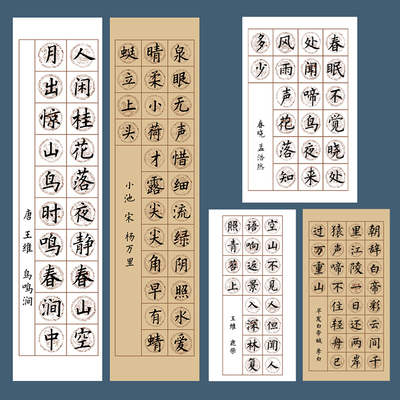 人闲桂花落夜静春山空
月出惊山鸟时鸣春涧中
唐 王维 鸟鸣涧
泉眼无声惜细流绿阴照水爱
晴柔小荷才露尖尖角早有蜻
蜓立上头
小池 宋 杨万里
春眠不觉晓处
处闻啼鸟夜来
风雨声花落知
多少
春晓 孟浩然
空山不见人但闻人
语响返景入深林复
照青苔上
王维 鹿柴
朝辞白帝彩云间千
里江陵一日还两岸
猿声啼不住轻舟已
过万重山
早发白帝城 李白